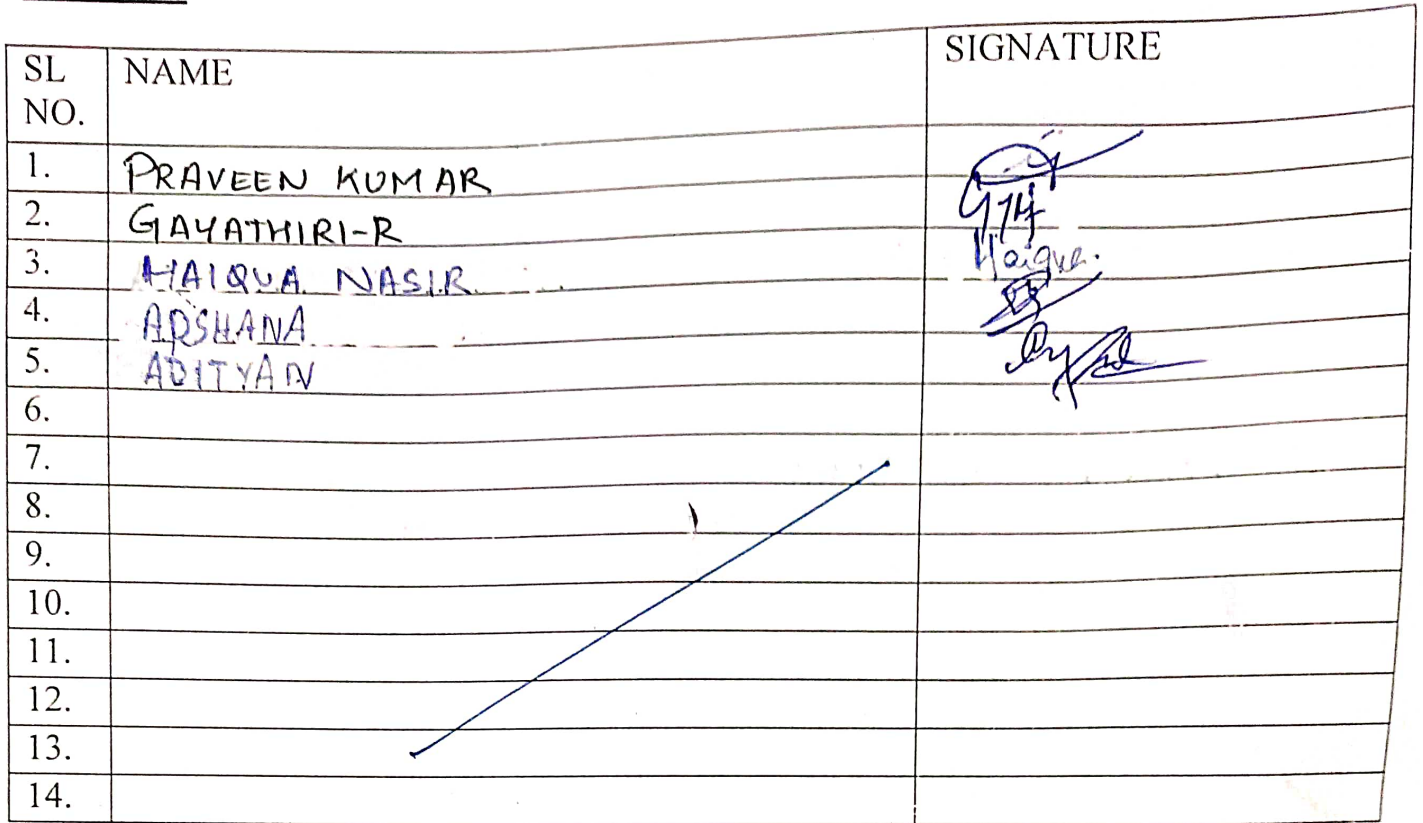 SL NO. NAME SIGNATURE
1. PRAVEEN KUMAR
2. GAYATHIRI-R
3. HAIQUA NASIR Haiqua.
4. ARSHANA
5. ADITYAN
6.
7.
8.
9.
10.
11.
12.
13.
14.